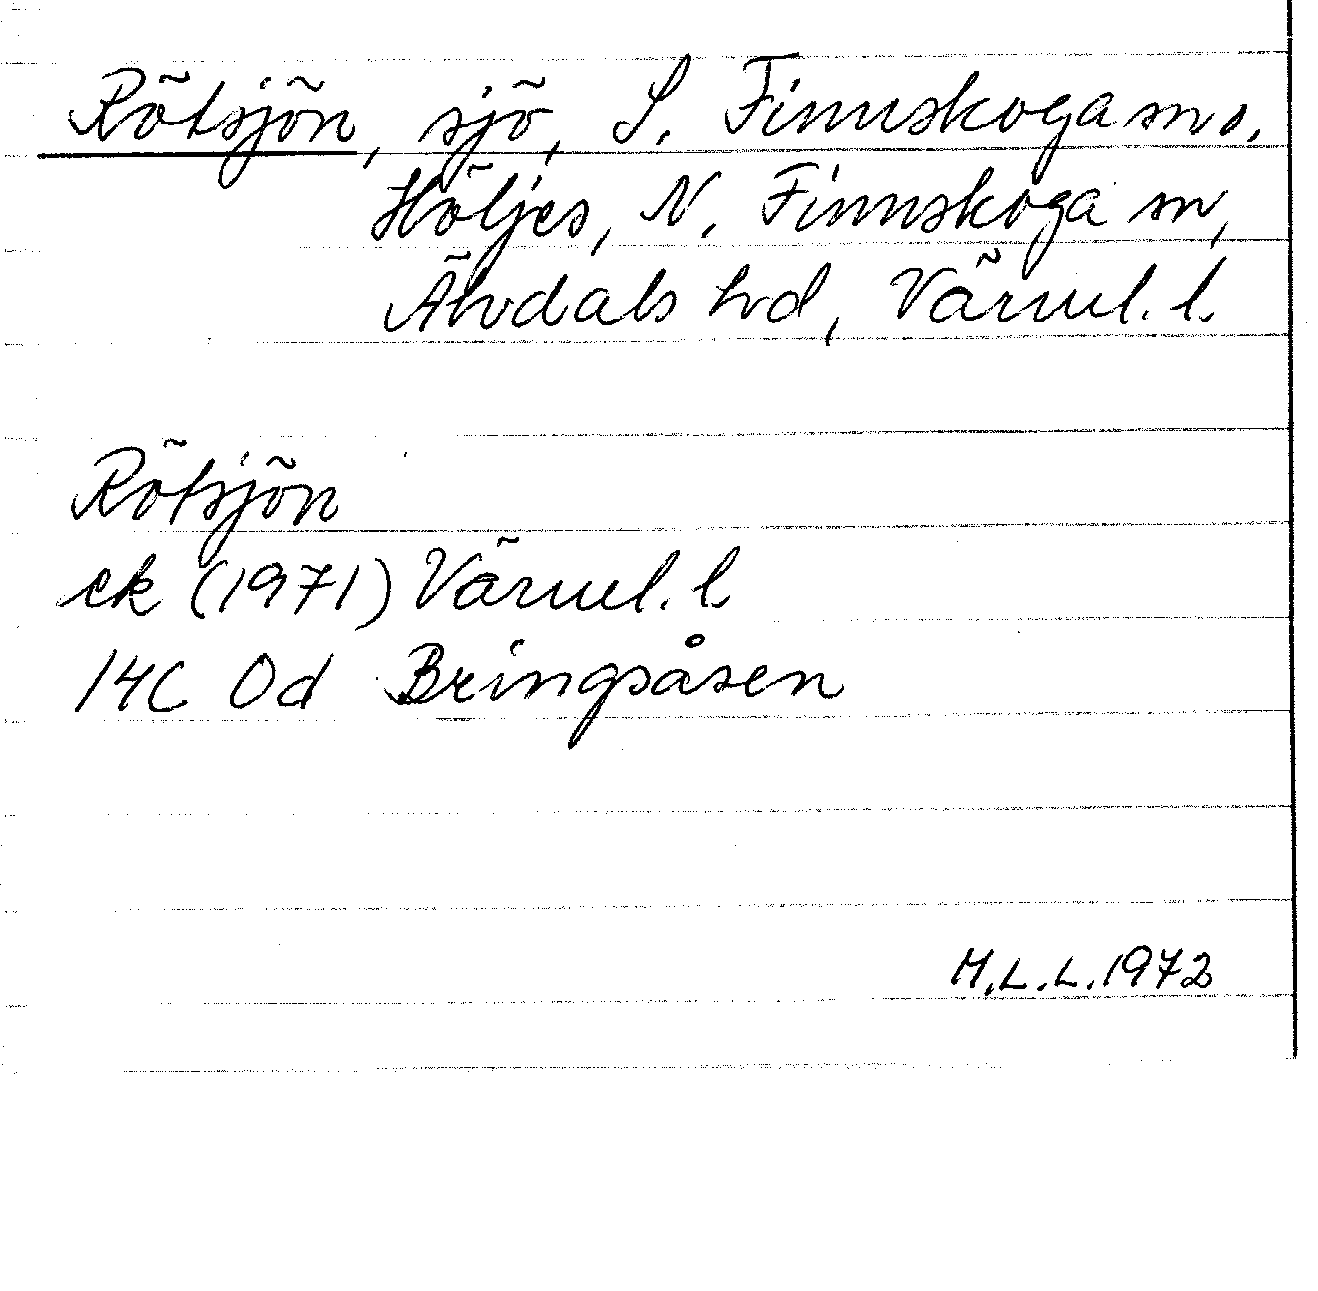 Rötsjön, sjö, S. Finnskoga m o.
Höljes, N. Finnskoga sn,
Älvdals hd, Värml. l.
Rötsjön
ek (1971) Värml. l.
14C 0d Bringsåsen
M.L.L. 1972